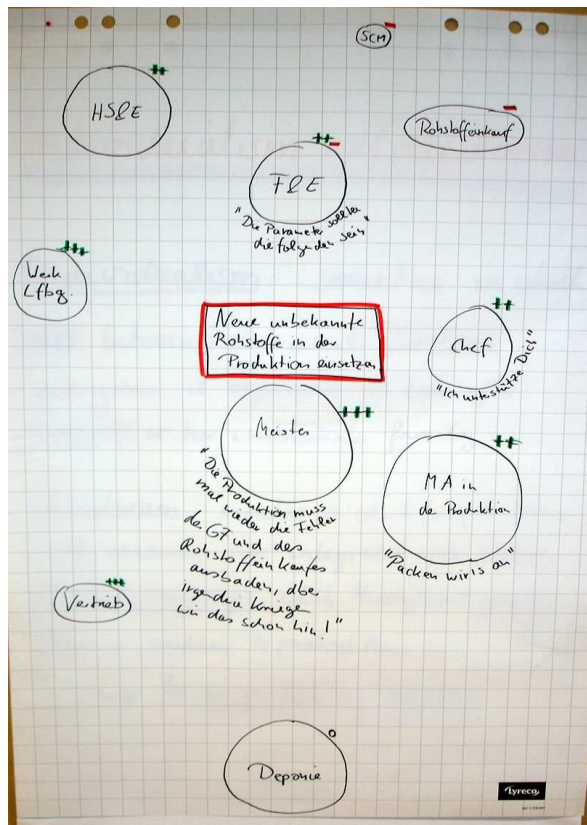 SCM
HS&E
Rohstoffeinkauf
F&E
"Die Parameter sollten
die folgenden sein"
Werk
Lfbg.
Neue unbekannte
Rohstoffe in der
Produktion einsetzen
Chef
"Ich unterstütze Dich"
Meister
"Die Produktion muss
mal wieder die Fehler
der G7 und des
Rohstoffeinkaufes
ausbaden, aber
irgendwie kriegen
wir das schon hin!"
MA in
der Produktion
"Packen wir's an"
Vertrieb
Deponie
Lyreco